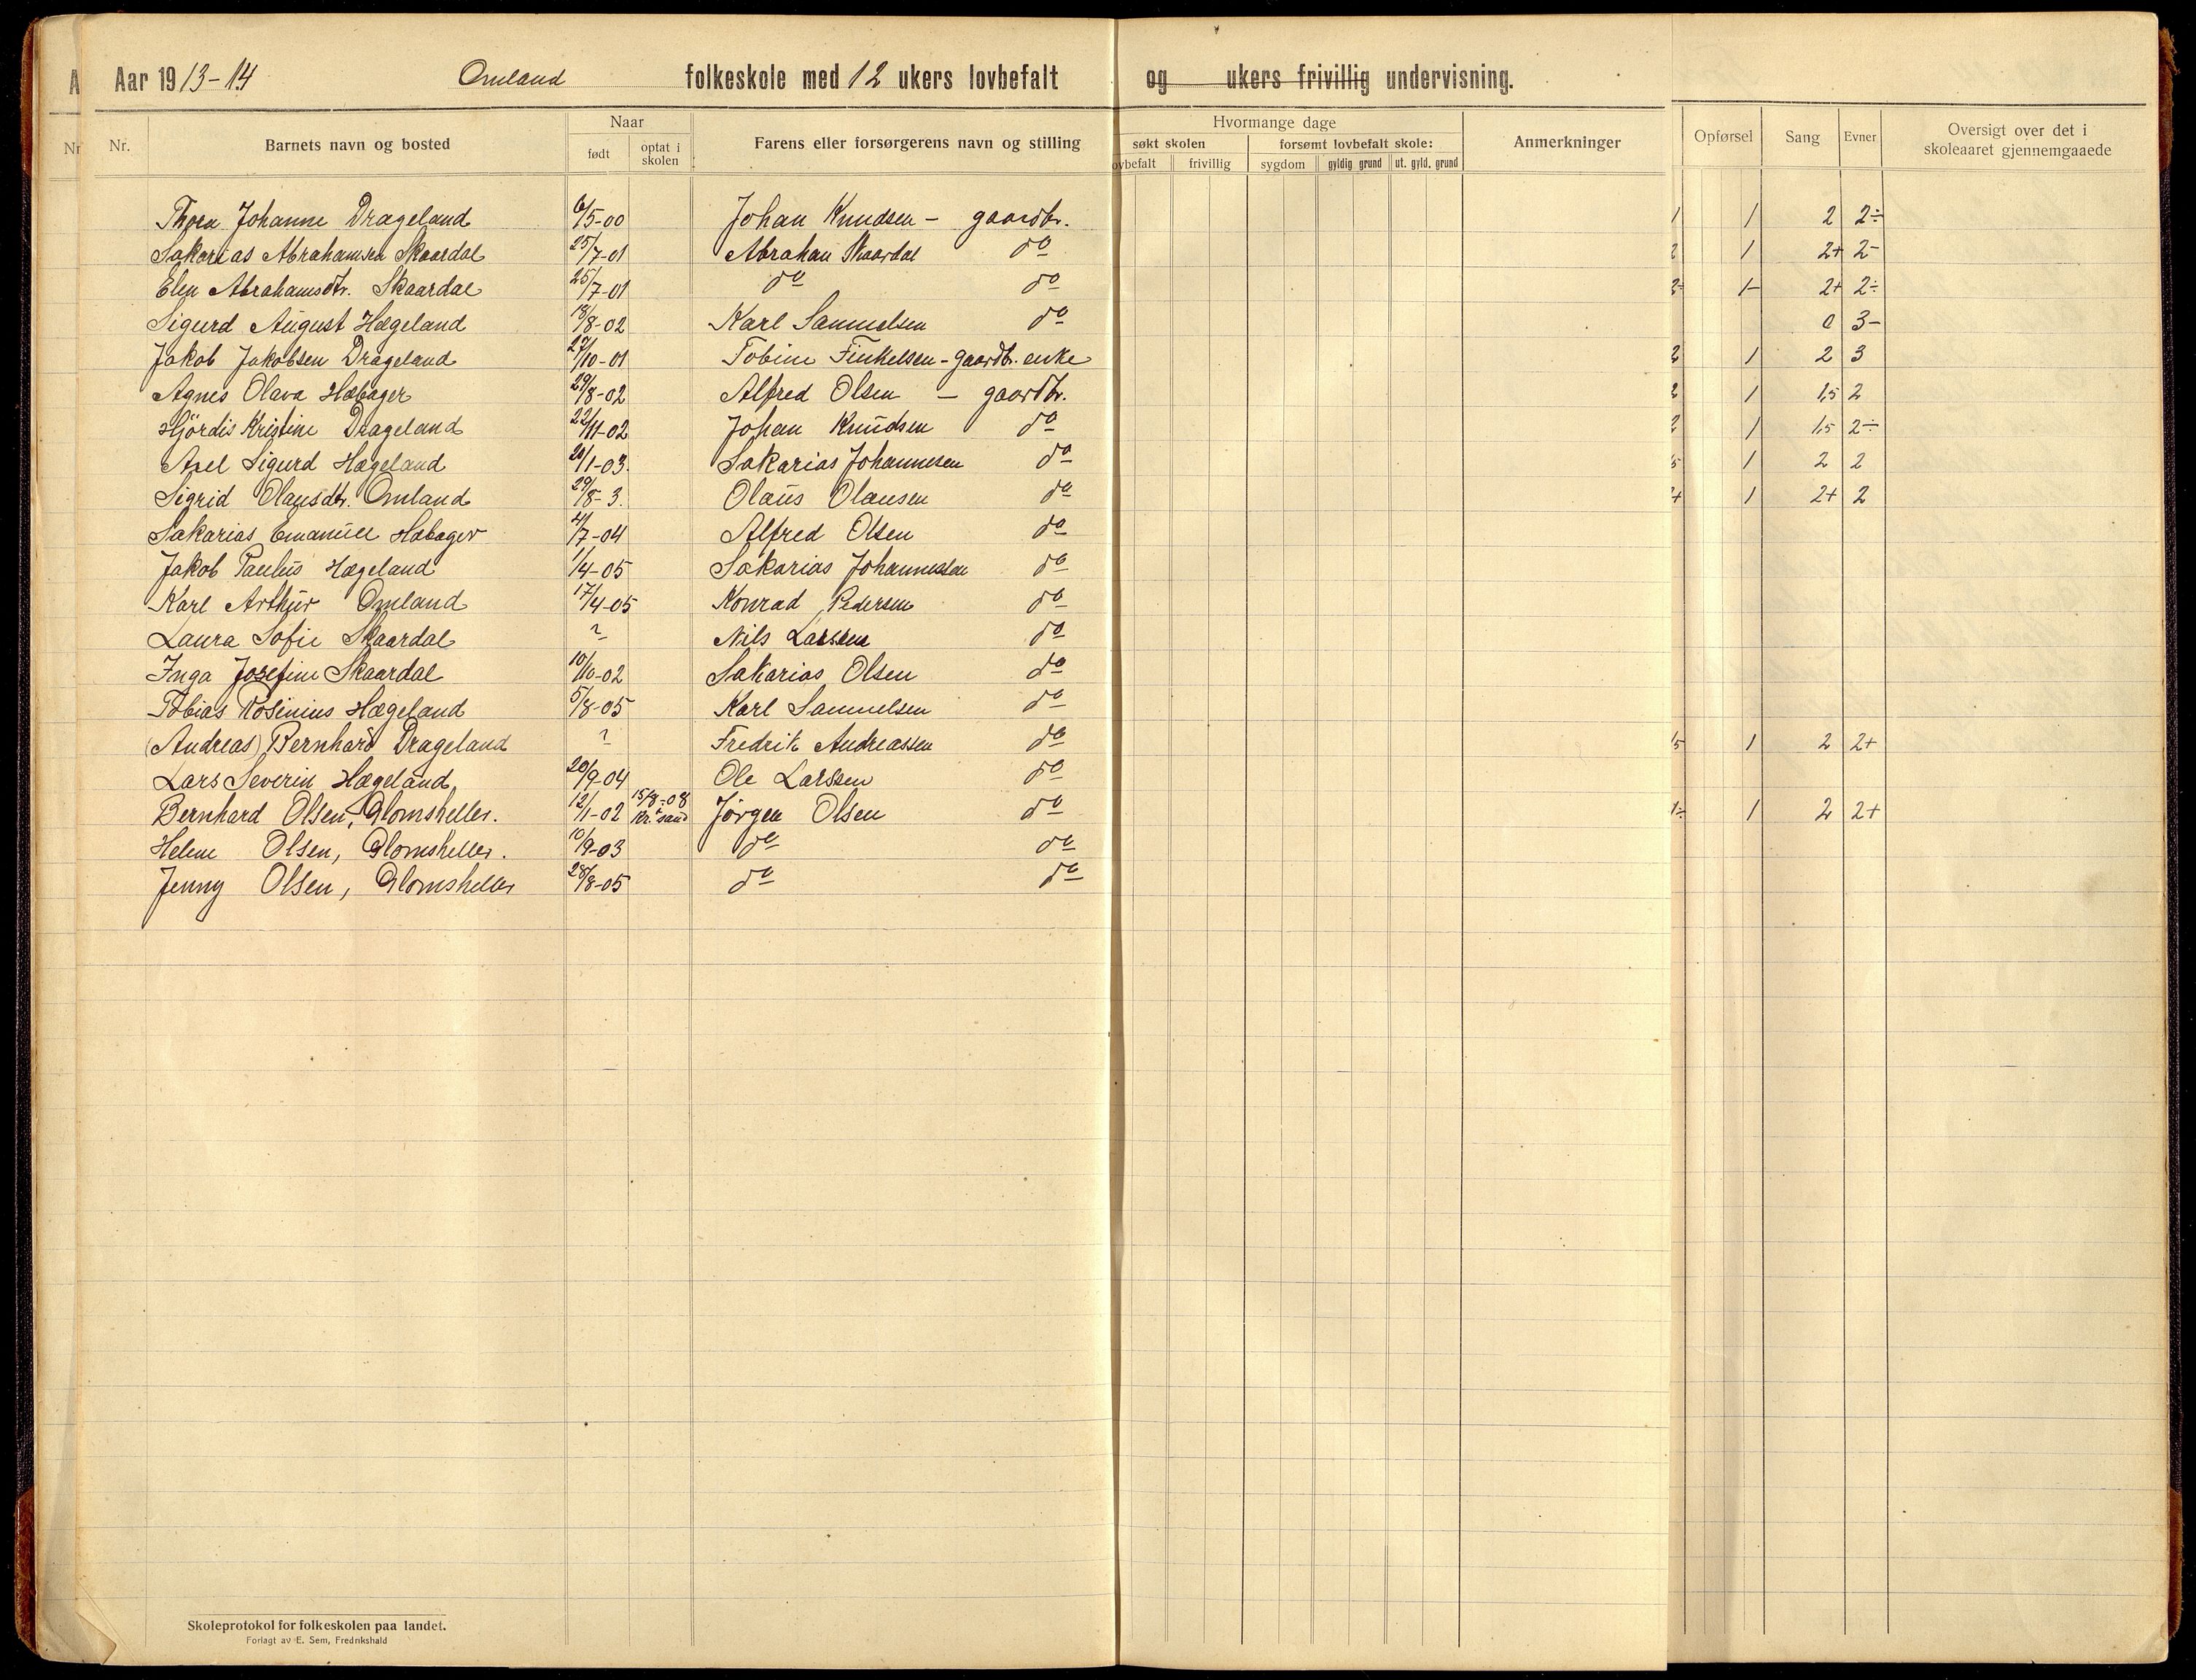 Aar 1913-14 Omland folkeskole med 12 ukers lovbefalt og ukers frivillig undervisning.
Nr. Barnets navn og bosted Naar født optat i skolen Farens eller forsørgerens navn og stilling Hvormange dage søkt skolen ovbefalt frivillig forsømt lovbefalt skole: sygdom gyldig grund ut. gyld. grund Anmerkninger Opførsel Sang Evner Oversigt over det i skoleaaret gjennemgaaede
Thora Johanne Drageland 6/5-00 Johan Knudsen - gaardbr. 1 1 2 2÷
Sakarias Abrahamsen Skaardal 25/7-01 Abraham Skaardal do 2 1 2+ 2-
Elen Abrahamsdtr. Skaardal 25/7-01 do do 2÷ 1- 2+ 2÷
Sigurd August Hægeland 18/8-02 Karl Samuelsen do 0 3-
Jakob Jakobsen Drageland 27/10-01 Tobine Finkelsen - gaardbr. enke 2 1 2 3
Agnes Olava Hæbager 29/8-02 Alfred Olsen - gaardbr. 2 1 1,5 2
Hjördis Kristine Drageland 22/11-02 Johan Knudsen do 2 1 1,5 2÷
Axel Sigurd Hægeland 20/1-03. Sakarias Johannesen do 5 1 2 2
Sigrid Olausdtr. Omland 29/8-3. Olaus Olausen do 2+ 1 2+ 2
Sakarias Emanuel Hæbager 4/7-04 Alfred Olsen do
Jakob Paulus Hægeland 1/4-05 Sakarias Johannesen do
Karl Arthur Omland 17/4-05 Konrad Pedersen do
Laura Sofie Skaardal ? Nils Larssen do
Inga Josefine Skaardal 10/10-02 Sakarias Olsen do
Tobias Rosinius Hægeland 5/8-05 Karl Samuelsen do
(Andreas) Bernhard Drageland ? Fredrik Andreassen do 5 1 2 2+
Lars Severin Hægeland 20/9-04 Ole Larssen do
Bernhard Olsen, Glomsheller. 12/1-02 15/8-08 Kr.sand Jørgen Olsen do 1÷ 1 2 2+
Helene Olsen, Glomsheller. 10/9-03 do do
Jenny Olsen, Glomsheller 28/8-05 do do
Skoleprotokol for folkeskolen paa landet.
Forlagt av E. Sem, Fredrikshald